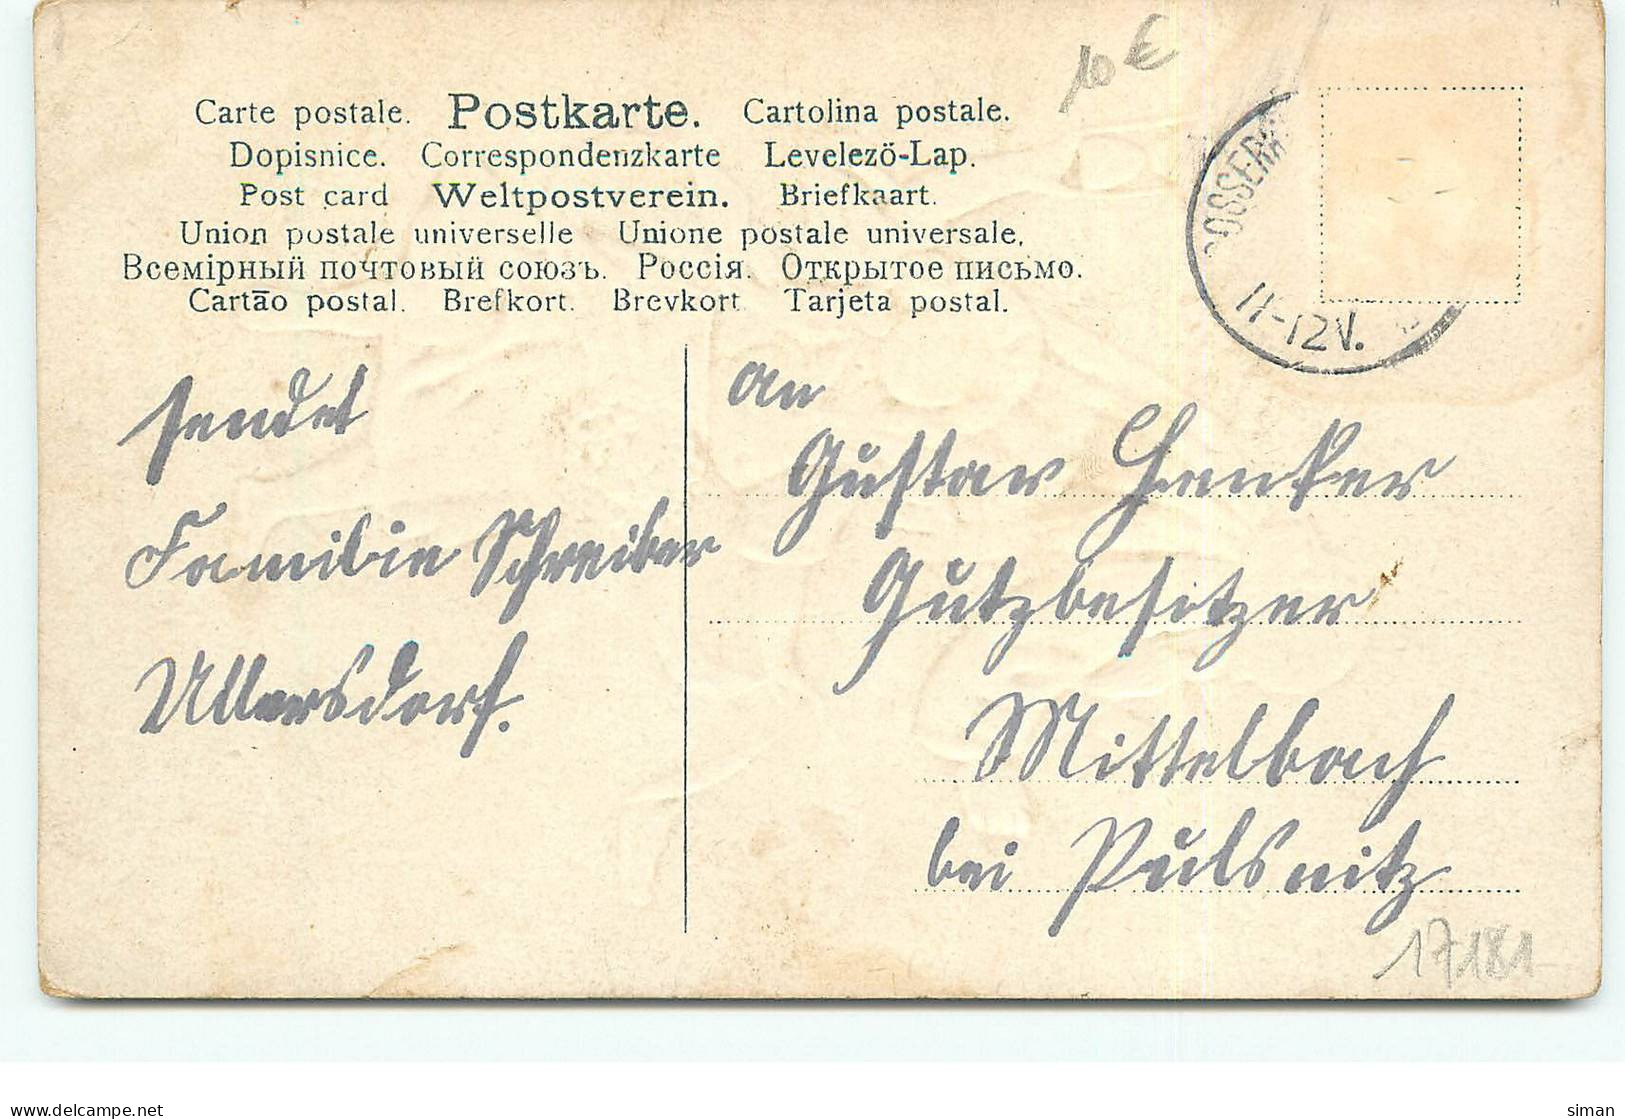 10 €
Carte postale. Postkarte. Cartolina postale.
Dopisnice. Correspondenzkarte Levelezö-Lap.
Post card Weltpostverein. Briefkaart.
Union postale universelle Unione postale universale,
Всемірный почтовый союзъ. Россія. Открытое письмо.
Cartão postal. Brefkort. Brevkort Tarjeta postal.
11-12V.
sendet
Familie Schreiber
Ullersdorf.
an
Gustav Henker
Gutzbesitzer
Mittelbach
bei Pulsnitz
17181
delcampe.net
siman